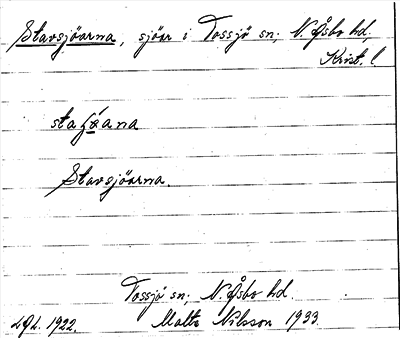 Stavsjöarna, sjöar i Tossjö sn; N. Åsbo hd.
Krist. l.
Stavsjöarna.
Tossjö sn; N. Åsbo hd.
1922. Malte Nilsson 1933.